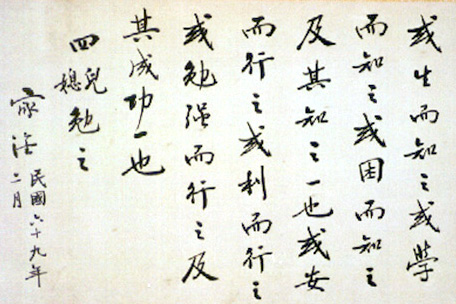 或生而知之或學
而知之或困而知之
及其知之一也或安
而行之或利而行之
或勉強而行之及
其成功一也
四兒媳勉之
家淦
民國六十九年
二月